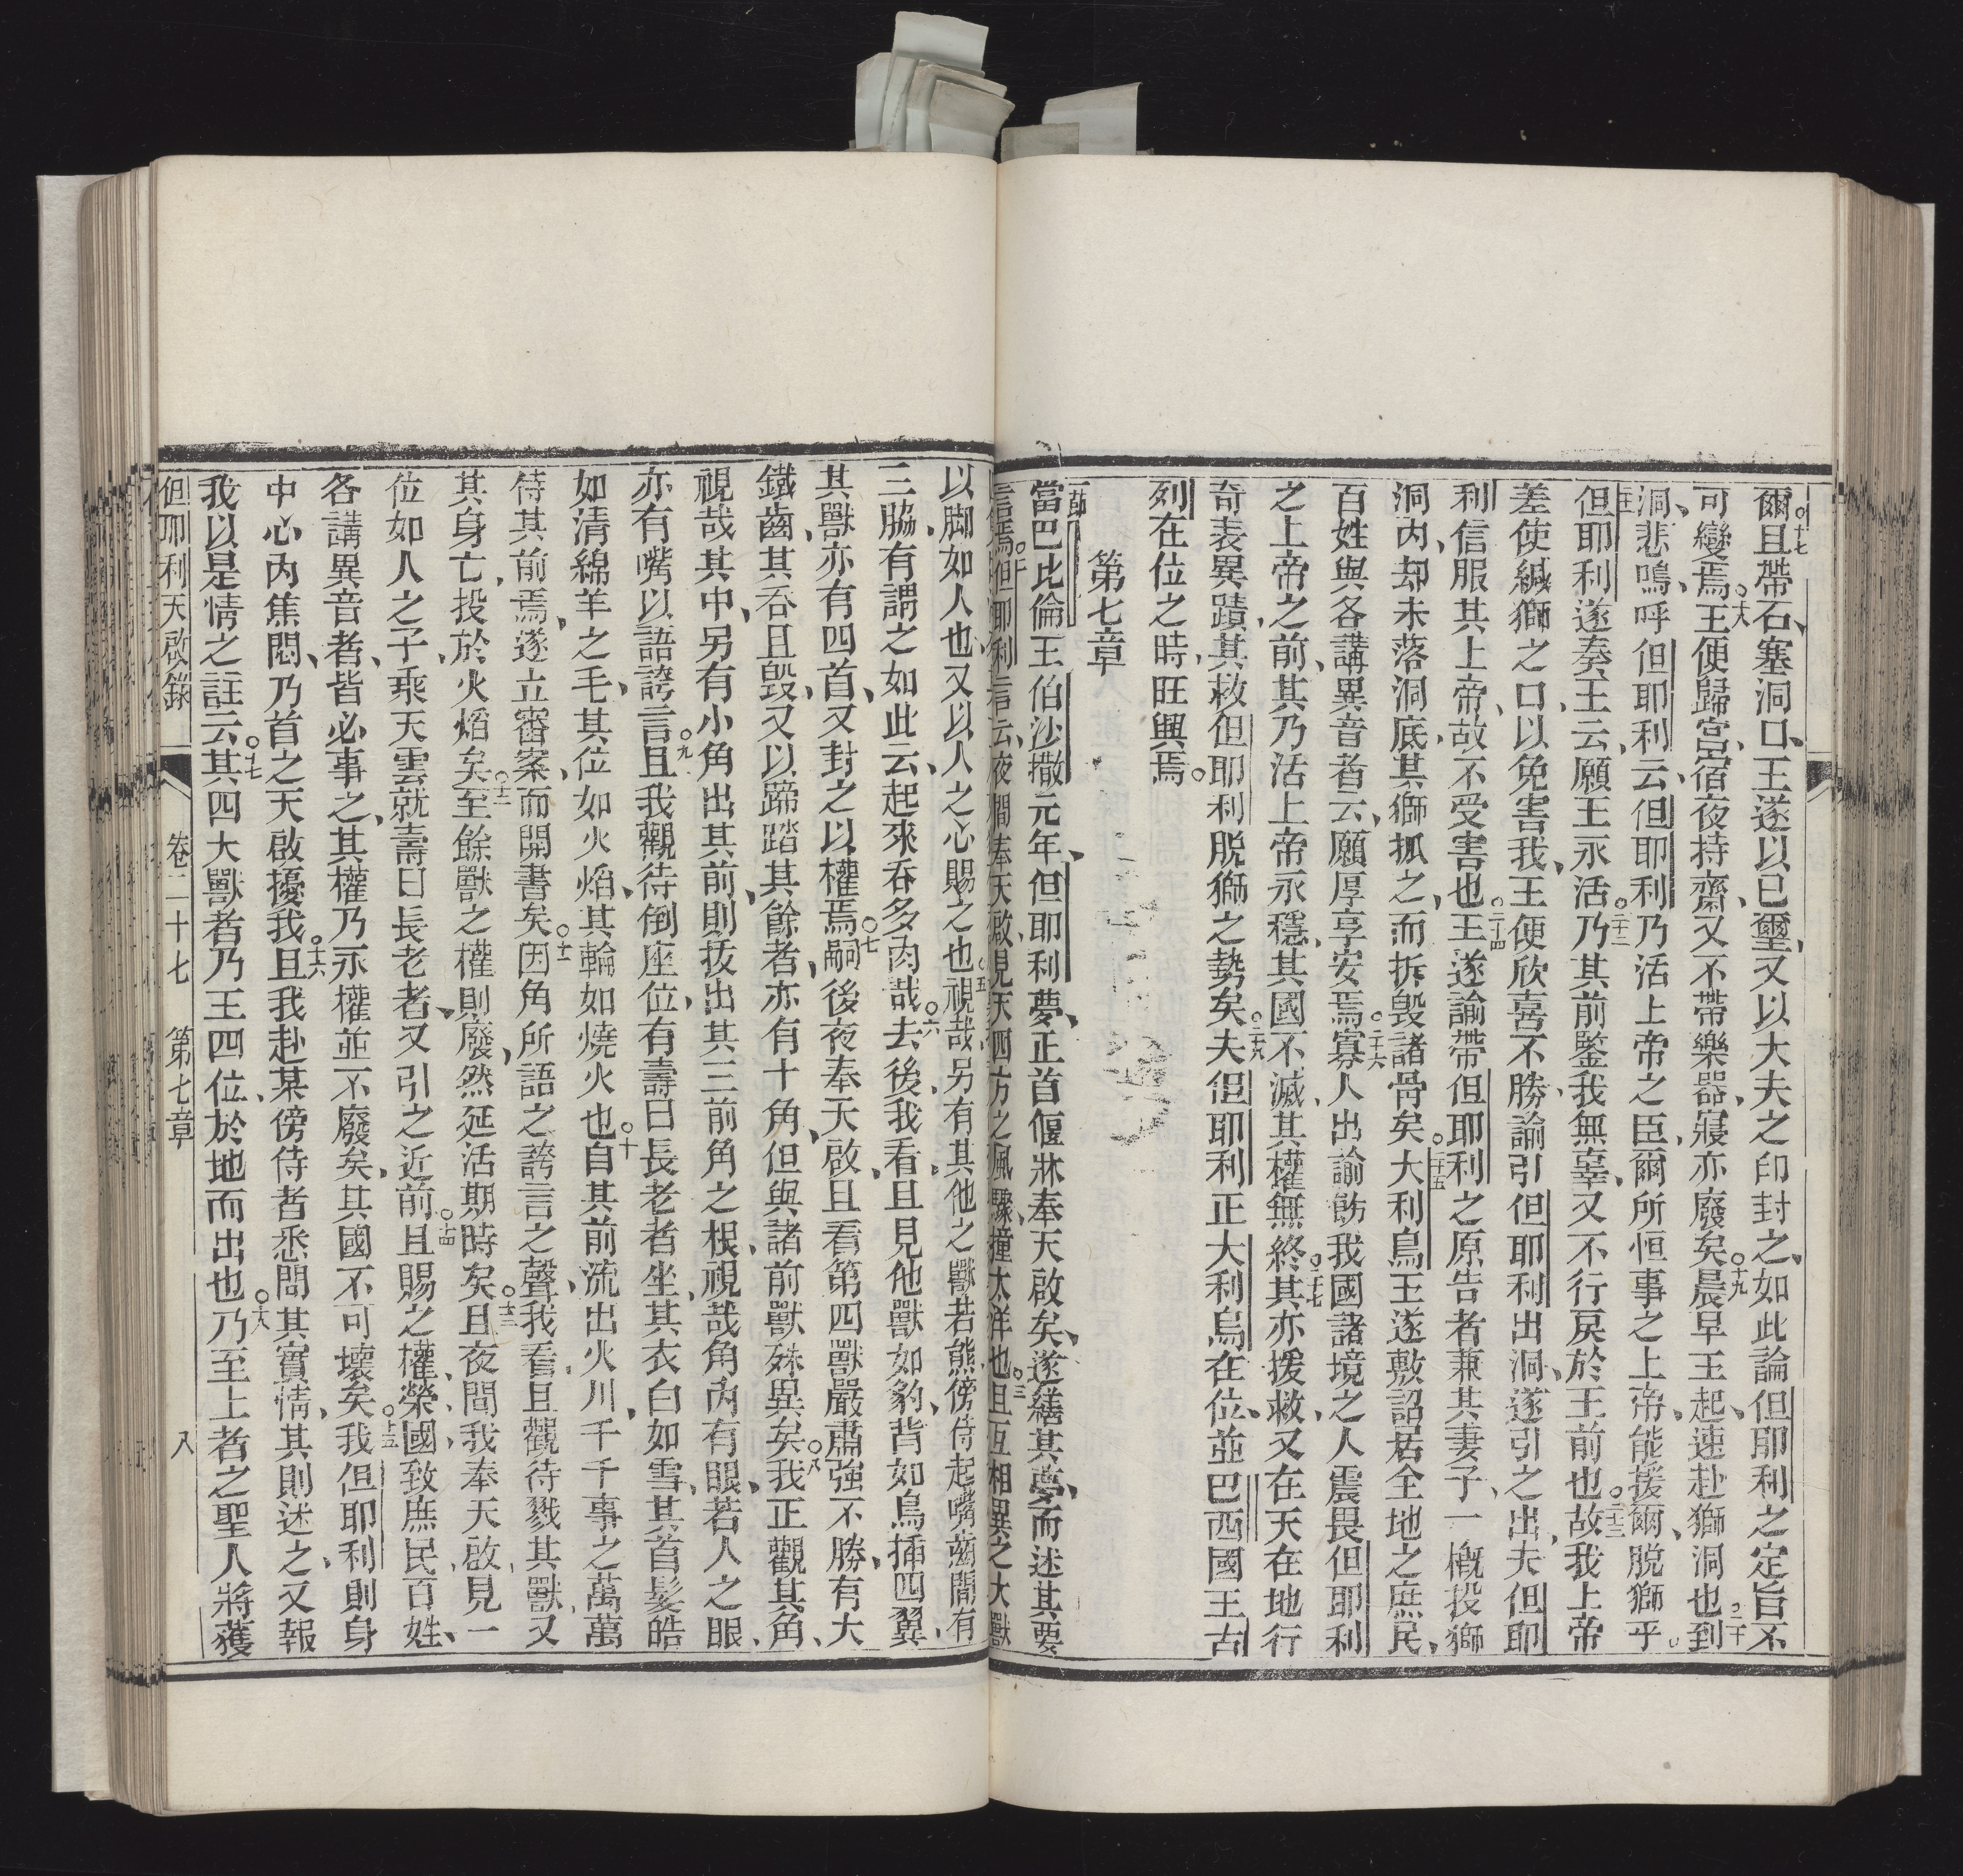 ○十七爾且帶石塞洞口、王遂以已璽、又以大夫之印封之、如此諭但耶利之定旨不
可變焉○十八王便歸宮、宿夜持齋、又不帶樂器、寢亦廢矣○十九晨早王起、速赴獅洞也○二十到
洞、悲鳴、呼但耶利云、但耶利乃活上帝之臣、爾所恒事之上帝、能援爾、脫獅乎
但耶利遂奏王云、願王永活○二十二乃其前鑒我無辜、又不行戾於王前也○二十三故我上帝
差使緘獅之口、以免害我、王便欣喜不勝、諭引但耶利出洞、遂引之出、夫但耶
利信服其上帝、故不受害也○二十四王遂諭帶但耶利之原告者兼其妻子、一概投獅
洞內、却未落洞底、其獅抓之、而拆毀諸骨矣○二十五大利烏王遂敷詔居全地之庶民、
百姓與各講異音者云、願厚享安焉○二十六寡人出諭飭我國諸境之人震畏但耶利
之上帝之前、其乃活上帝永穩、其國不滅、其權無終○二十七其亦援救、又在天在地行
奇表異蹟、其救但耶利脫獅之勢矣○二十八夫但耶利正大利烏在位、並巴西國王古
列在位之時、旺興焉○
第七章
一節當巴比倫王伯沙撒元年、但耶利夢、正首偃牀奉天啟矣、遂繕其夢、而述其要
言焉○二但耶利言云、夜間奉天啟、見天四方之風驟撞太洋也○三且互相異之大獸
以脚如人也、又以人之心賜之也○五視哉另有其他之獸若熊、傍侍起嘴齒間有
三脇、有謂之如此云、起來吞多肉哉○六去後、我看且見他獸如豹、背如鳥揷四翼、
其獸亦有四首、又封之以權焉○七嗣後夜奉天啟、且看第四獸嚴肅強不勝、有大
鐵齒、其吞且毀、又以蹄踏其餘者、亦有十角、但與諸前獸殊異矣○八我正觀其角、
視哉其中、另有小角出其前、則拔出其三前角之根、視哉角內有眼、若人之眼、
亦有嘴以語誇言○九且我觀待倒座位、有壽曰長老者坐、其衣白如雪、其首髮皓
如清綿羊之毛、其位如火焰、其輪如燒火也○十自其前流出火川、千千事之、萬萬
侍其前焉、遂立審案、而開書矣○十一因角所語之誇言之聲、我看且觀待戮其獸、又
其身亡、投於火焰矣○十二至餘獸之權則廢、然延活期時矣○十三且夜間我奉天啟、見一
位如人之子、乘天雲就壽曰長老者、又引之近前○十四且賜之權、榮、國、致庶民、百姓、
各講異音者、皆必事之、其權乃永權並不廢矣、其國不可壞矣○十五我但耶利則身
中心內焦悶、乃首之天啟擾我○十六且我赴某傍侍者悉問其實情、其則述之、又報
我以是情之註云○十七其四大獸者乃王四位、於地而出也○十八乃至上者之聖人將獲
但耶利天啟錄 卷二十七 第七章 八